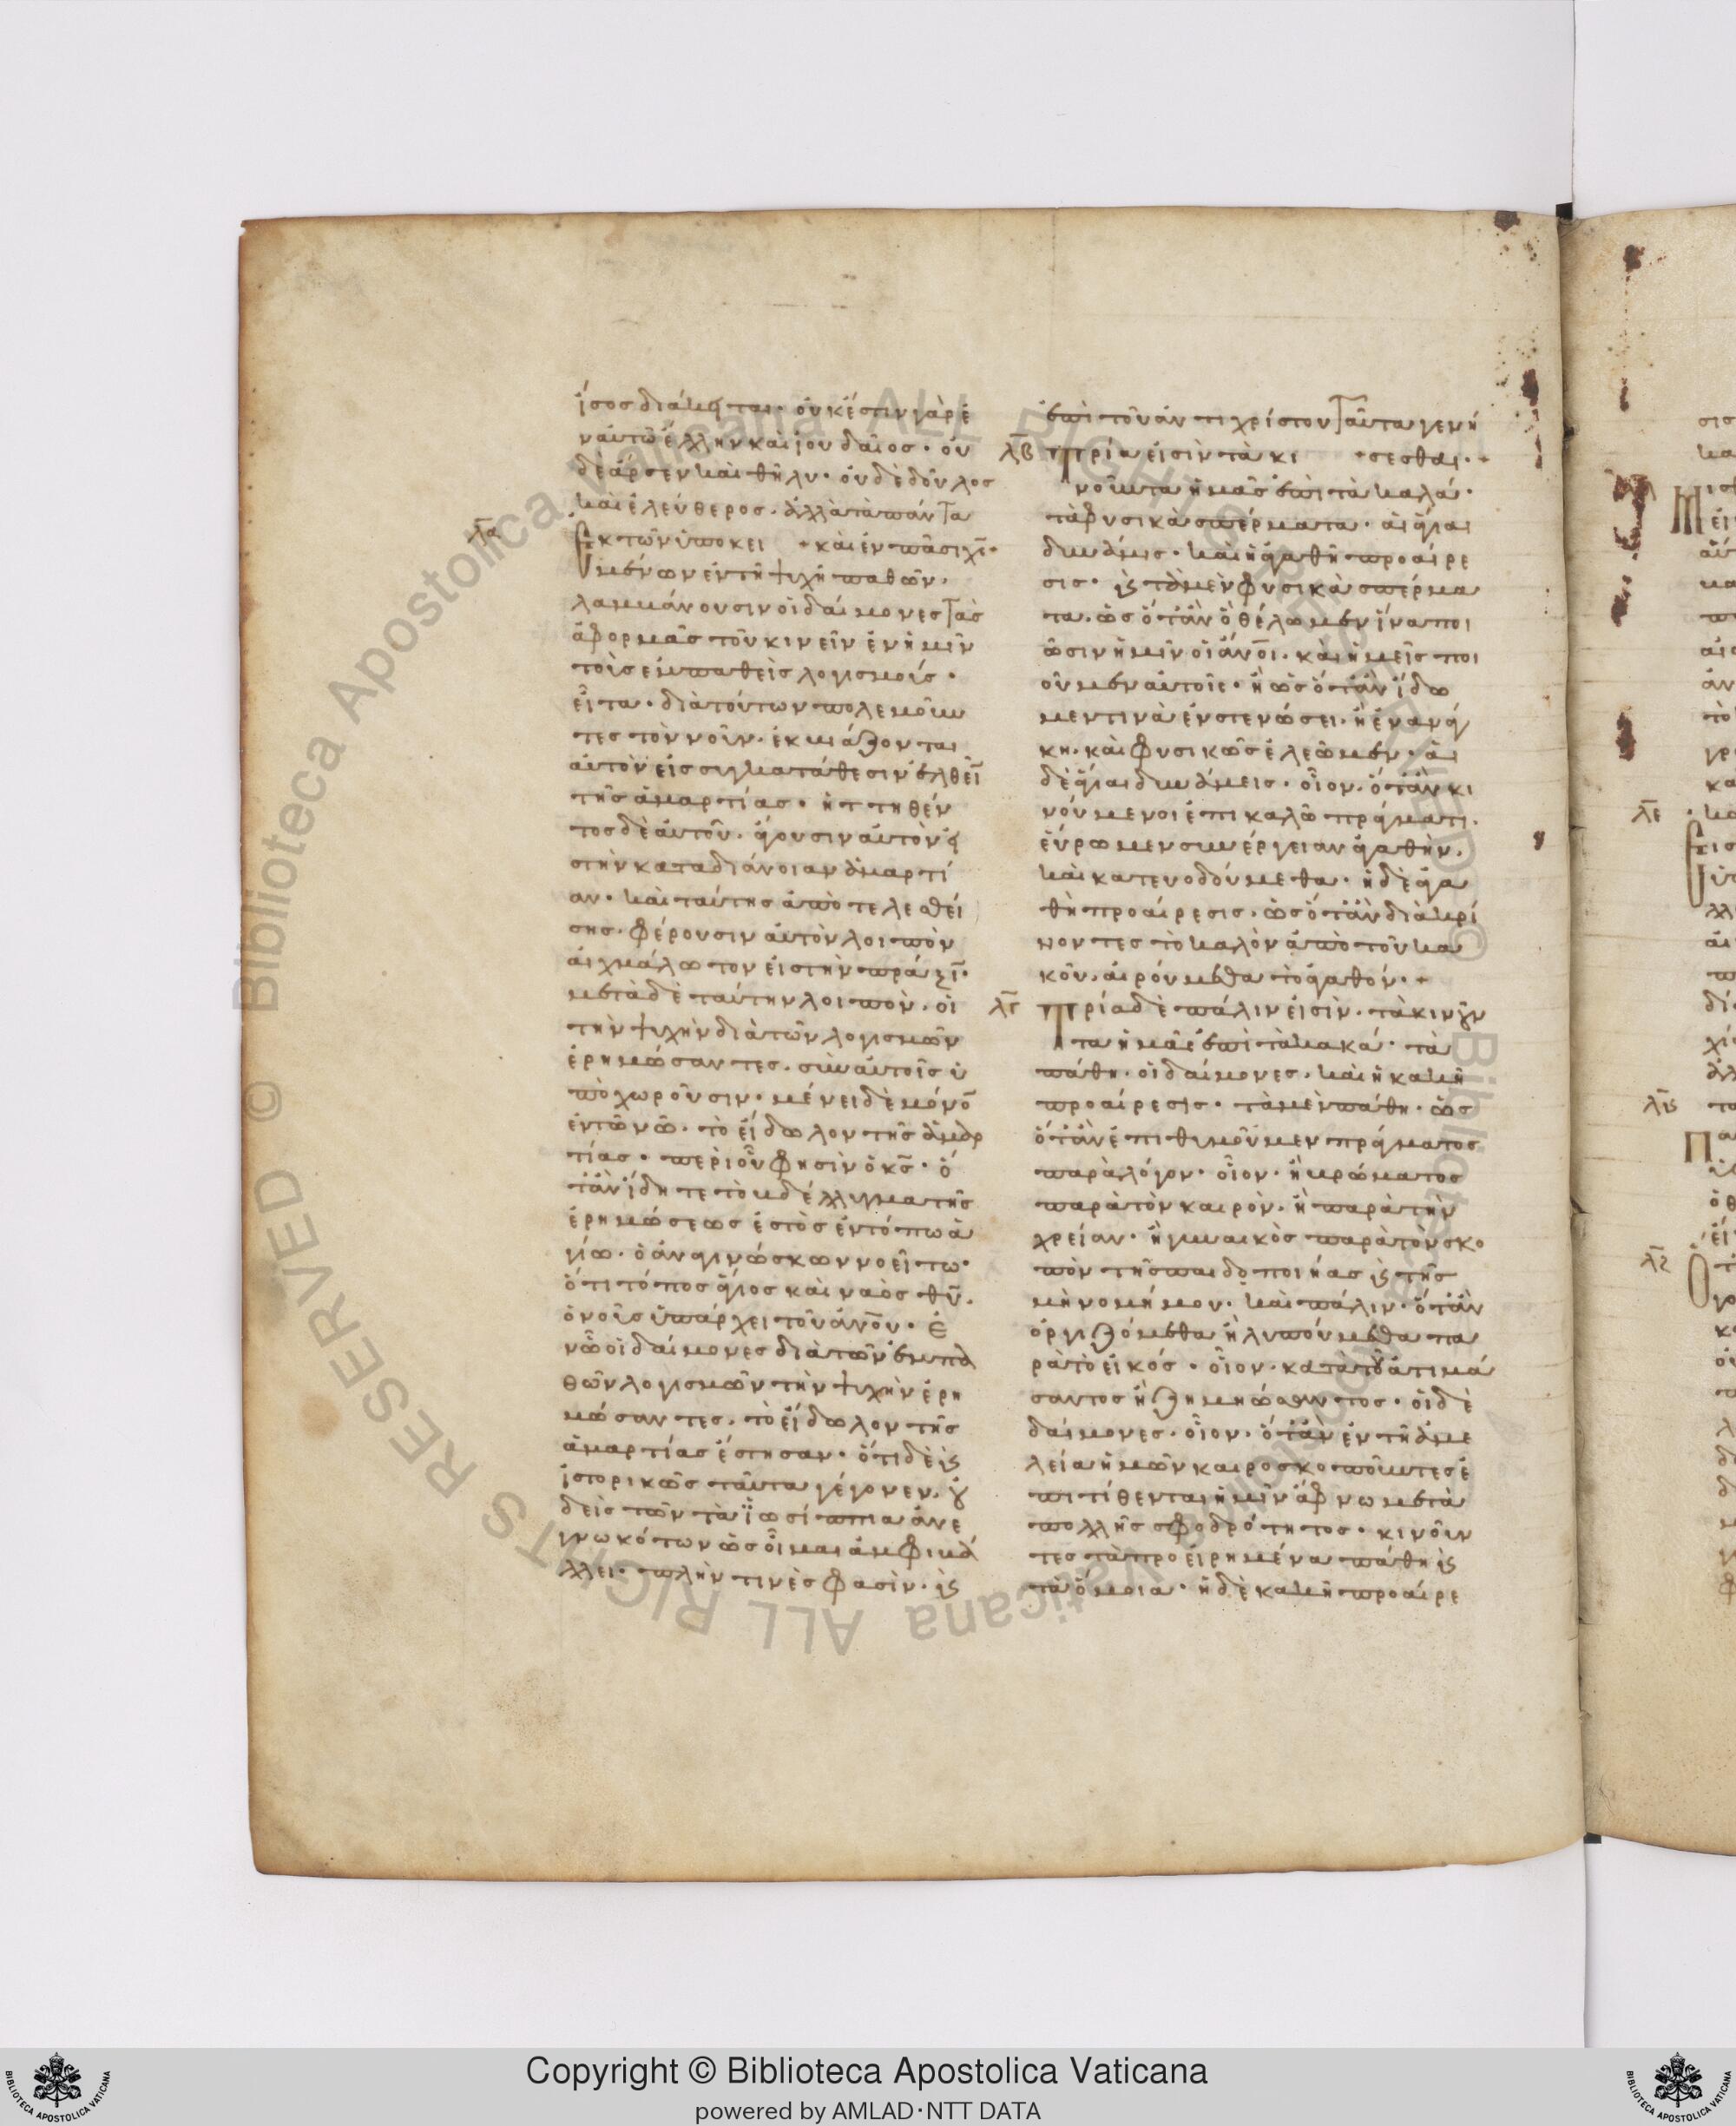 ἴσος διάκειται· οὐκ έστιν γὰρ ἐ
ν αὐτῶ ἕλλην καὶ ἰουδαῖος· οὐ
δὲ ἄρσεν καὶ θῆλυ· οὐδὲ δοῦλος
καὶ ἐλεύθερος· ἀλλὰ τὰ πάντα
+ καὶ ἐν πᾶσι χ̅ς̅ +
λα Ἐκ τῶν ὑποκει
μένων ἐν τῆ ψυχῆ παθῶν·
λαμμάνουσιν οἱ δαίμονες τὰς
ἀφορμὰς τοῦ κινεῖν ἐν ἡμῖν
τοὺς ἐμπαθεῖς λογισμούς·
εἶτα· διὰ τούτων πολεμοῦν
τες τὸν νοῦν· ἐκβιάζονται
αὐτὸν εἰς συγκατάθεσιν ἐλθεῖν
τῆς ἁμαρτίας· ἡττηθέν
τος δὲ αὐτοῦ· ἄγουσιν αὐτὸν εἰ
ς τὴν κατα διάνοιαν ἁμαρτί
αν· καὶ ταύτης ἀποτελεσθεί
σης· φέρουσιν αὐτὸν λοιπὸν
αἰχμάλωτον εἰς τὴν πρᾶξιν·
μετὰ δὲ ταύτην λοιπὸν· οἱ
τὴν ψυχὴν διὰ τῶν λογισμῶν
ἐρημώσαντες· σὺν αὐτοῖς ὑ
πὸχωροῦσιν· μένει δὲ μόνον
ἐν τῶ νῶ· τὸ εἴδωλον τῆς ἁμαρ
τίας· περὶ οὗ φησὶν ὁ κ̅ς̅· ὅ
τὰν ἴδητε τὸ βδέλλυγμα τῆς
ἐρημώσεως ἑστὸς ἐν τόπω ἁ
γίω· ὁ ἀναγινώσκων νοεῖτω·
ὅτι τόπος ἅγιος καὶ ναὸς θ̅υ̅·
ὁ νοῦς ὑπάρχει τοῦ ἀν̅ο̅υ· ἐ
ν ὧ οἱ δαίμονες διὰ τῶν ἐμπα
θῶν λογισμῶν τὴν ψυχὴν ἐρη
μώσαντες· τὸ εἴδωλον τῆς
ἁμαρτίας ἔστησαν· ὅτι δὲ κ(αὶ)
ἱστορικῶς ταῦτα γέγονεν· οὐ
δεὶς τῶν τὰ ϊωσίππια ἀνε
γνωκότων ὡς οἶμαι ἀμφιβά
λλει· πλὴν τινὲς φασὶν· κ(αὶ)
ἐπὶ τοῦ ἀντιχρίστου ταῦτα γενή
+ σεσθαι· +
λβ Τρία εἰσὶν τὰ κι
νοῦντα ἡμᾶς ἐπὶ τὰ καλά·
τὰ φυσικὰ σπέρματα· αἱ ἅγιαι
δυνάμις· καὶ ἡ ἀγαθὴ προαίρε
σις· κ(αὶ) τὰ μὲν φυσικὰ σπέρμα
τα· ὡς ὅτὰν ὃ θέλωμεν ἵνα ποι
ῶσιν ἡμῖν οἱ ἄν̅ο̅ι· καὶ ἡμεῖς ποι
οῦμεν αὐτοῖς· ἢ ὡς ὅτὰν ἴδω
μεν τινὰ ἐν στενώσει· ἢ ἐν ἀνάγ
κη· καὶ φυσικῶς ἐλεῶμεν· αἱ
δὲ ἅγιαι δυνάμεις· οἷον· ὅτὰν κι
νούμενοι ἐπι καλῶ πράγματι·
εὕρωμεν συνέργειαν ἀγαθὴν·
καὶ κατευοδούμεθα· ἡ δὲ ἀγα
θὴ προαίρεσις· ὡς ὅτὰν διὰκρί
νοντες τὸ καλὸν ἀπὸ τοῦ κα
κοῦ· αἱρούμεθα τὸ ἀγαθόν· +
λγ Τρία δὲ πάλιν εἰσὶν· τὰ κινοῦν
τα ἡμᾶς ἐπὶ τὰ κακά· τὰ
πάθη· οἱ δαίμονες· καὶ ἡ κακὴ
προαίρεσις· τὰ μὲν πάθη· ὡς
ὅτὰν ἐπιθυμοῦμεν πράγματος
παρὰλόγον· οἷον· ἢ βρώματος
παρὰ τὸν καιρὸν· ἢ παρὰ τὴν
χρείαν· ἢ γυναικὸς παρὰ τὸν σκο
πὸν τῆς παιδοποιήας κ(αὶ) τῆς
μὴ νομήμου· καὶ πάλιν· ὅτὰν
ὀργιζόμεθα ἢ λυπούμεθα πα
ρὰ τὸ εἰκός· οἷον· κατὰ τοῦ ἀτιμά
σαντος ἢ ζημηώσαντος· οἱ δὲ
δαίμονες· οἷον· ὅτὰν ἐν τῆ ἀμε
λεία ἡμῶν καιροσκοποῦντες ἐ
πιτίθενται ἡμῖν ἄφνω μετὰ
πολλῆς σφοδρότητος· κινοῦν
τες τὰ προειρημένα πάθη κ(αὶ)
τὰ ὅμοια· ἡ δὲ κακὴ προαίρε
λε
λς
λζ
Copyright © Biblioteca Apostolica Vaticana
powered by AMLAD・NTT DATA